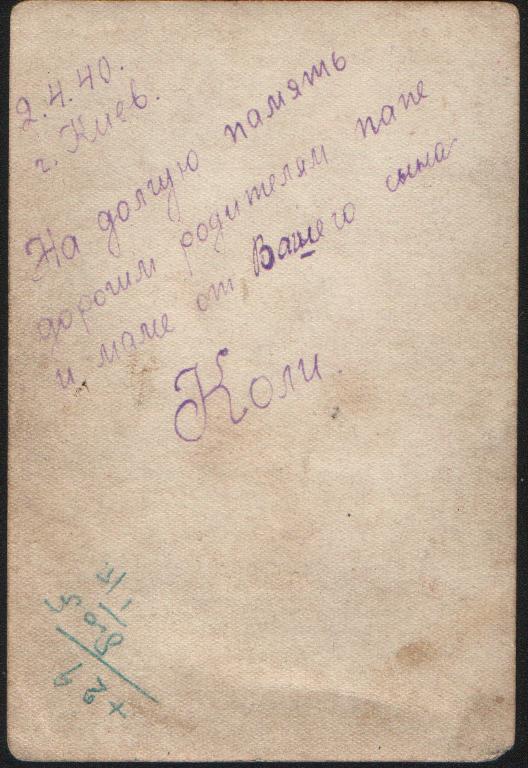 2.4.40.
г. Киев.
На долгую память
дорогим родителям папе
и маме от Вашего сына
Коли.